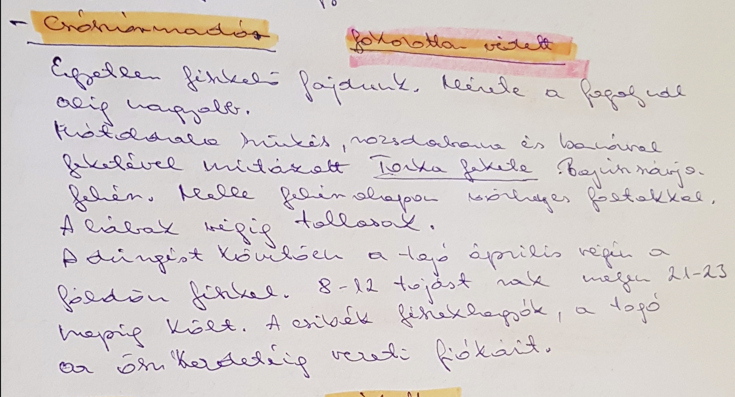 - Császármadár fokozottan védett
Egyetlen fészkelő fajdunk. Mérete a fogolynál
alig nagyobb.
Hátoldala szürkés, rozsdabarna és barnával
feketével mintázott Torka fekete Bajuszsávja
fehér. Melle fehér alapon vörhenyes foltokkal.
A lábak végig tollasak.
A dürgést követően a tojó április végén a
földön fészkel. 8-12 tojást rak melyen 21-23
napig költ. A csibék fészekhagyók, a tojó
az ősz kezdetéig vezeti fiókáit.